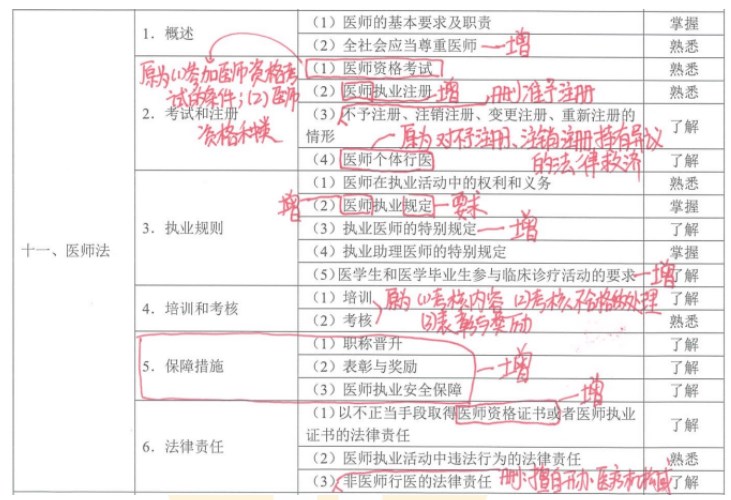 十一、医师法
1. 概述
（1）医师的基本要求及职责
掌握
（2）全社会应当尊重医师
增
熟悉
2. 考试和注册
原为(1)参加医师资格考
试的条件；(2)医师
资格种类
（1）医师资格考试
熟悉
（2）医师执业注册
增
删：准予注册
熟悉
（3）不予注册、注销注册、变更注册、重新注册的
情形
了解
原为对不予注册、注销注册持有异议
的法律救济
（4）医师个体行医
了解
3. 执业规则
（1）医师在执业活动中的权利和义务
熟悉
增
（2）医师执业规定
要求
掌握
（3）执业医师的特别规定
增
了解
（4）执业助理医师的特别规定
掌握
（5）医学生和医学毕业生参与临床诊疗活动的要求
增
了解
4. 培训和考核
（1）培训
了解
（2）考核
熟悉
原为(1)考核内容 (2)考核不合格的处理
(3)表彰与奖励
5. 保障措施
（1）职称晋升
了解
（2）表彰与奖励
增
了解
（3）医师执业安全保障
了解
6. 法律责任
增
（1）以不正当手段取得医师资格证书或者医师执业
证书的法律责任
了解
（2）医师执业活动中违法行为的法律责任
熟悉
（3）非医师行医的法律责任
删：擅自开办医疗机构
了解